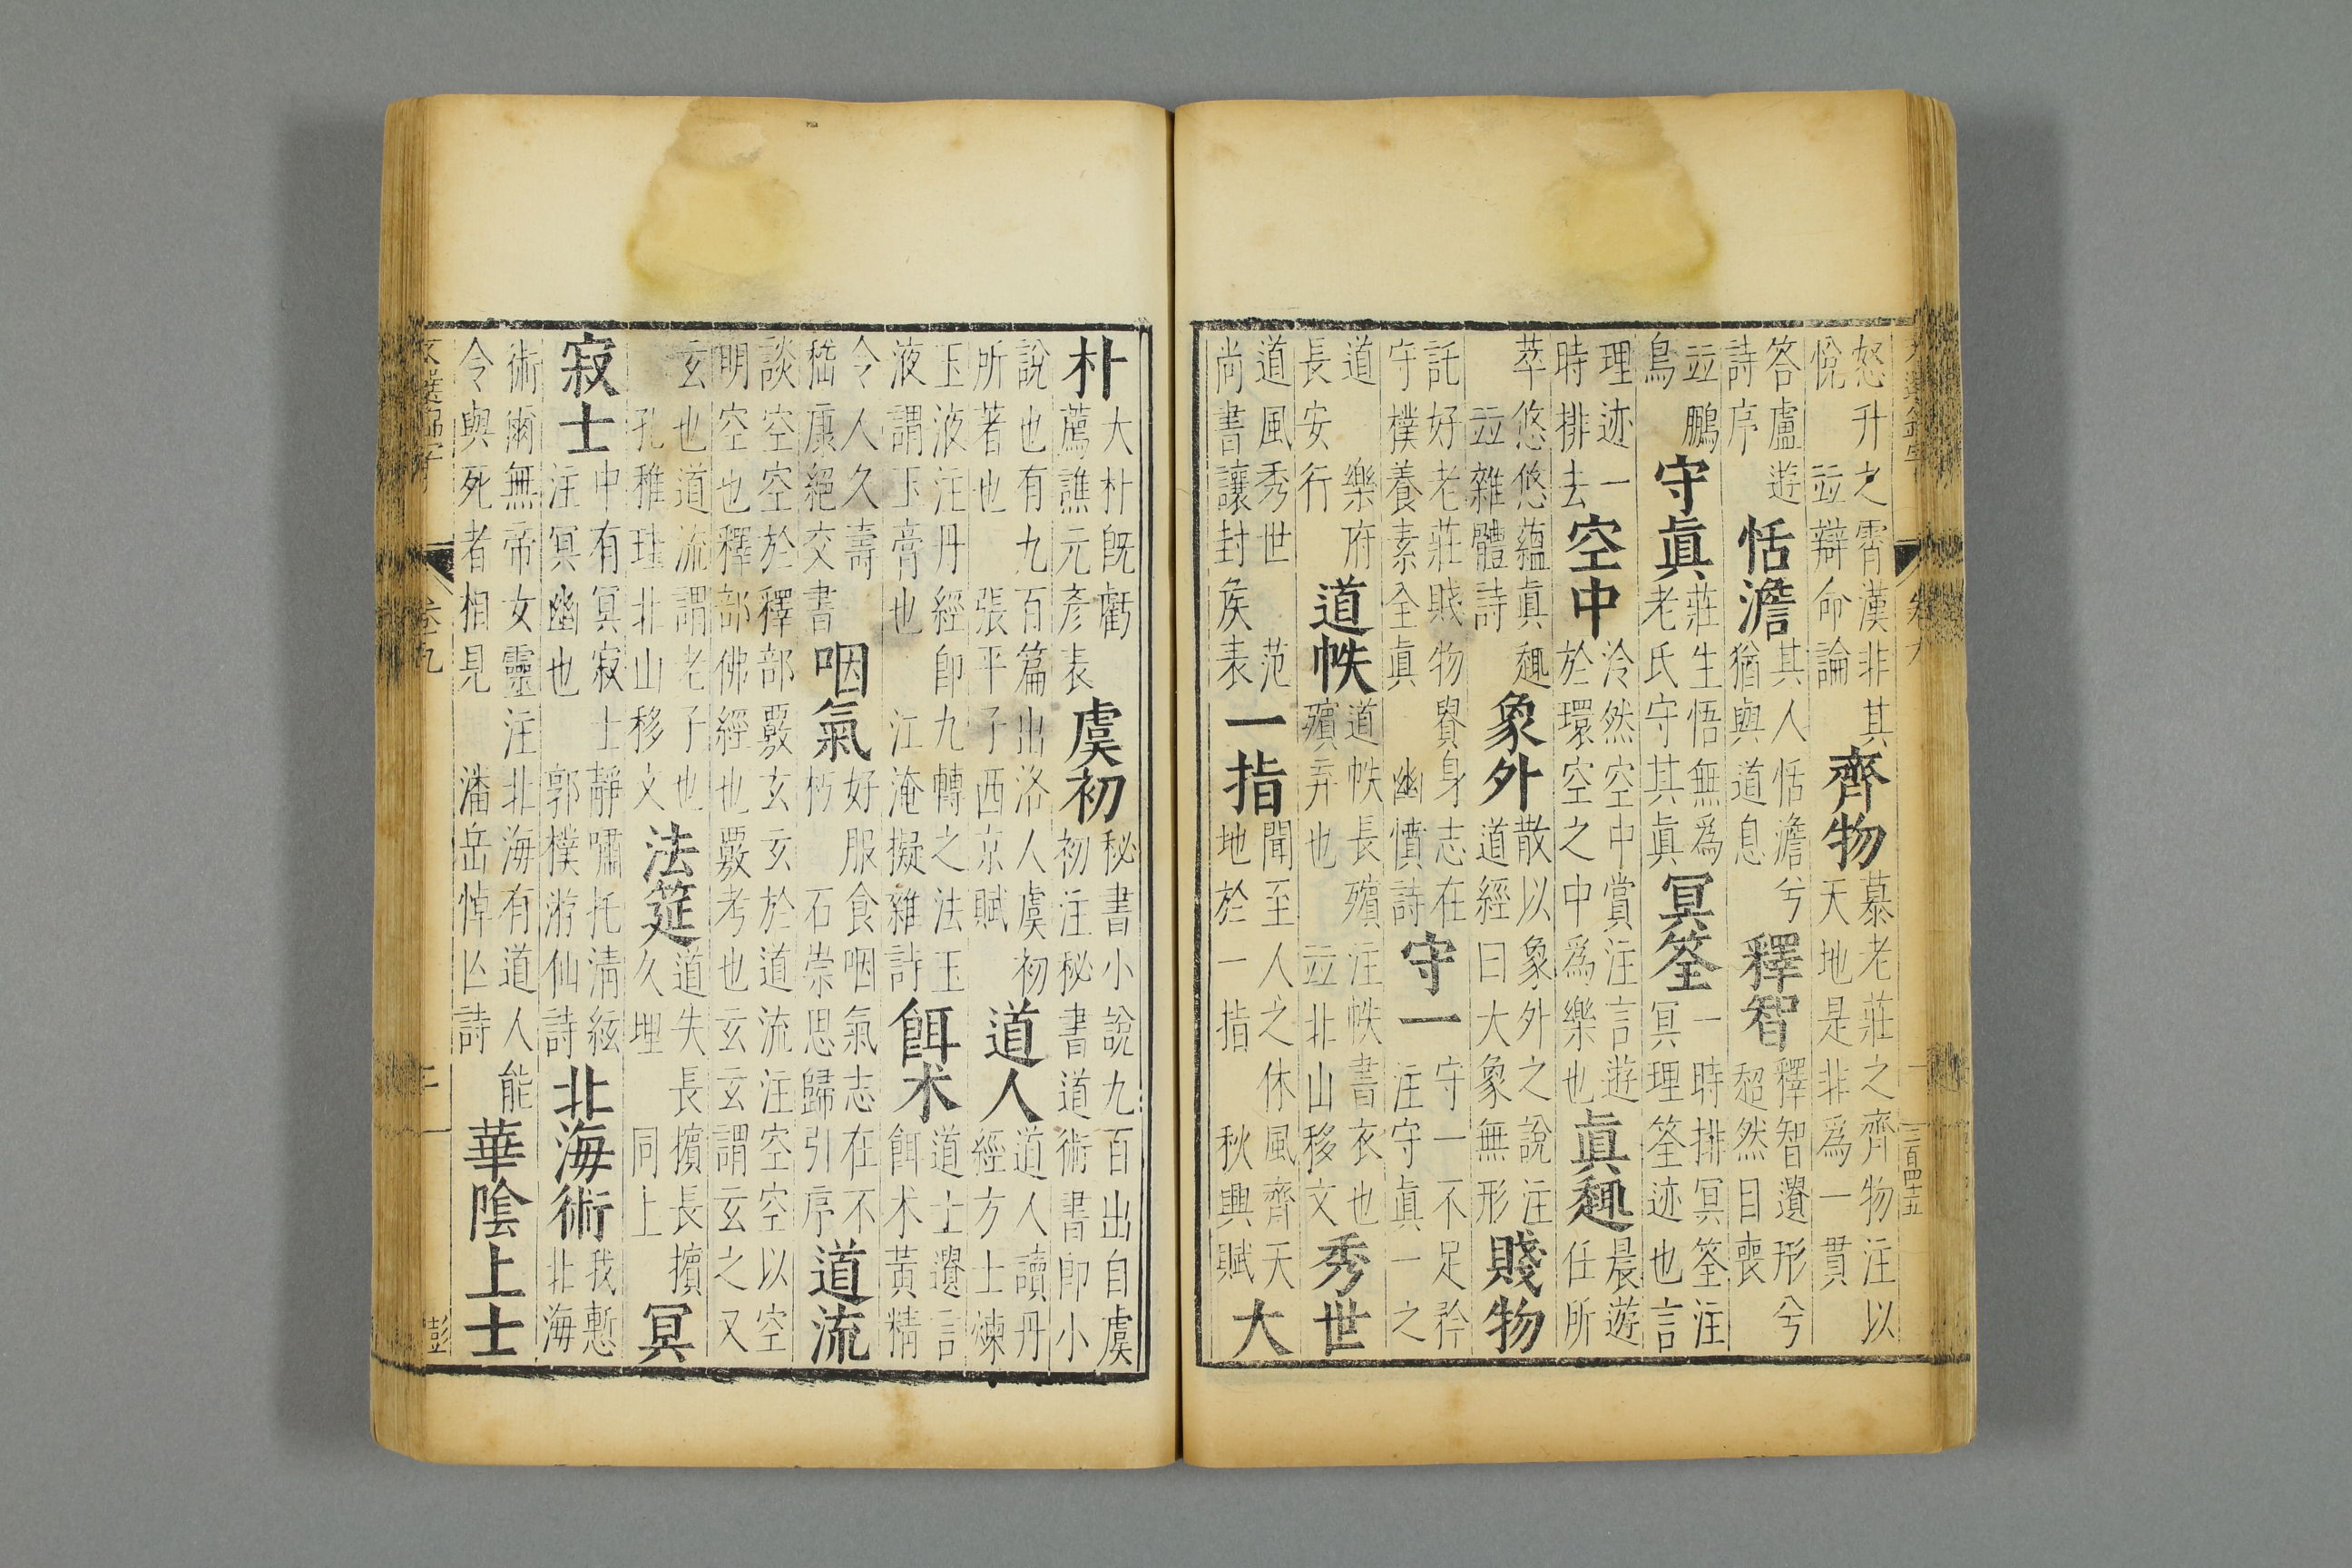 文選錦字 卷九 一 二百四十五
怒升之霄漢非其悅 並辯命論 齊物 慕老莊之齊物注以天地是非爲一貫
答盧諶詩序 恬澹 其人恬澹兮猶與道息 釋智 釋智遺形兮超然自喪
並鵩鳥 守眞 莊生悟無爲老氏守其眞 冥筌 一時排冥筌注冥理筌迹也言
理迹一時排去 空中 泠然空中賞注言遊於環空之中爲樂也 眞趣 晨遊任所
萃悠悠蘊眞趣 並雜體詩 象外 散以象外之說注道經曰大象無形 賤物
託好老莊賤物貴身志在守樸養素全眞 幽憤詩 守一 守一不足矜注守眞一之
道 樂府長安行 道帙 道帙長殯注帙書衣也殯弃也 並北山移文 秀世
道風秀世 范尚書讓封矦表 一指 聞至人之休風齊天地於一指 秋興賦 大
朴 大朴旣虧薦譙元彥表 虞初 秘書小說九百出自虞初注秘書道術書即小
說也有九百篇出洛人虞初所著也 張平子西京賦 道人 道人讀丹經方士煉
玉液注丹經即九轉之法玉液謂玉膏也 江淹擬雜詩 餌术 道士遺言餌术黃精
令人久壽 嵇康絕交書 咽氣 好服食咽氣志在不朽 石崇思歸引序 道流
談空空於釋部覈玄玄於道流注空空以空明空也釋部佛經也覈考也玄玄謂玄之又
玄也道流謂老子也 孔稚珪北山移文 法筵 道失長擯長擯久埋 同上 冥
寂士 中有冥寂士靜嘯托清絃注冥幽也 郭樸游仙詩 北海術 我慙北海
術爾無帝女靈注北海有道人能令與死者相見 潘岳悼亾詩 華陰上士
文選錦字 卷九 二 彭